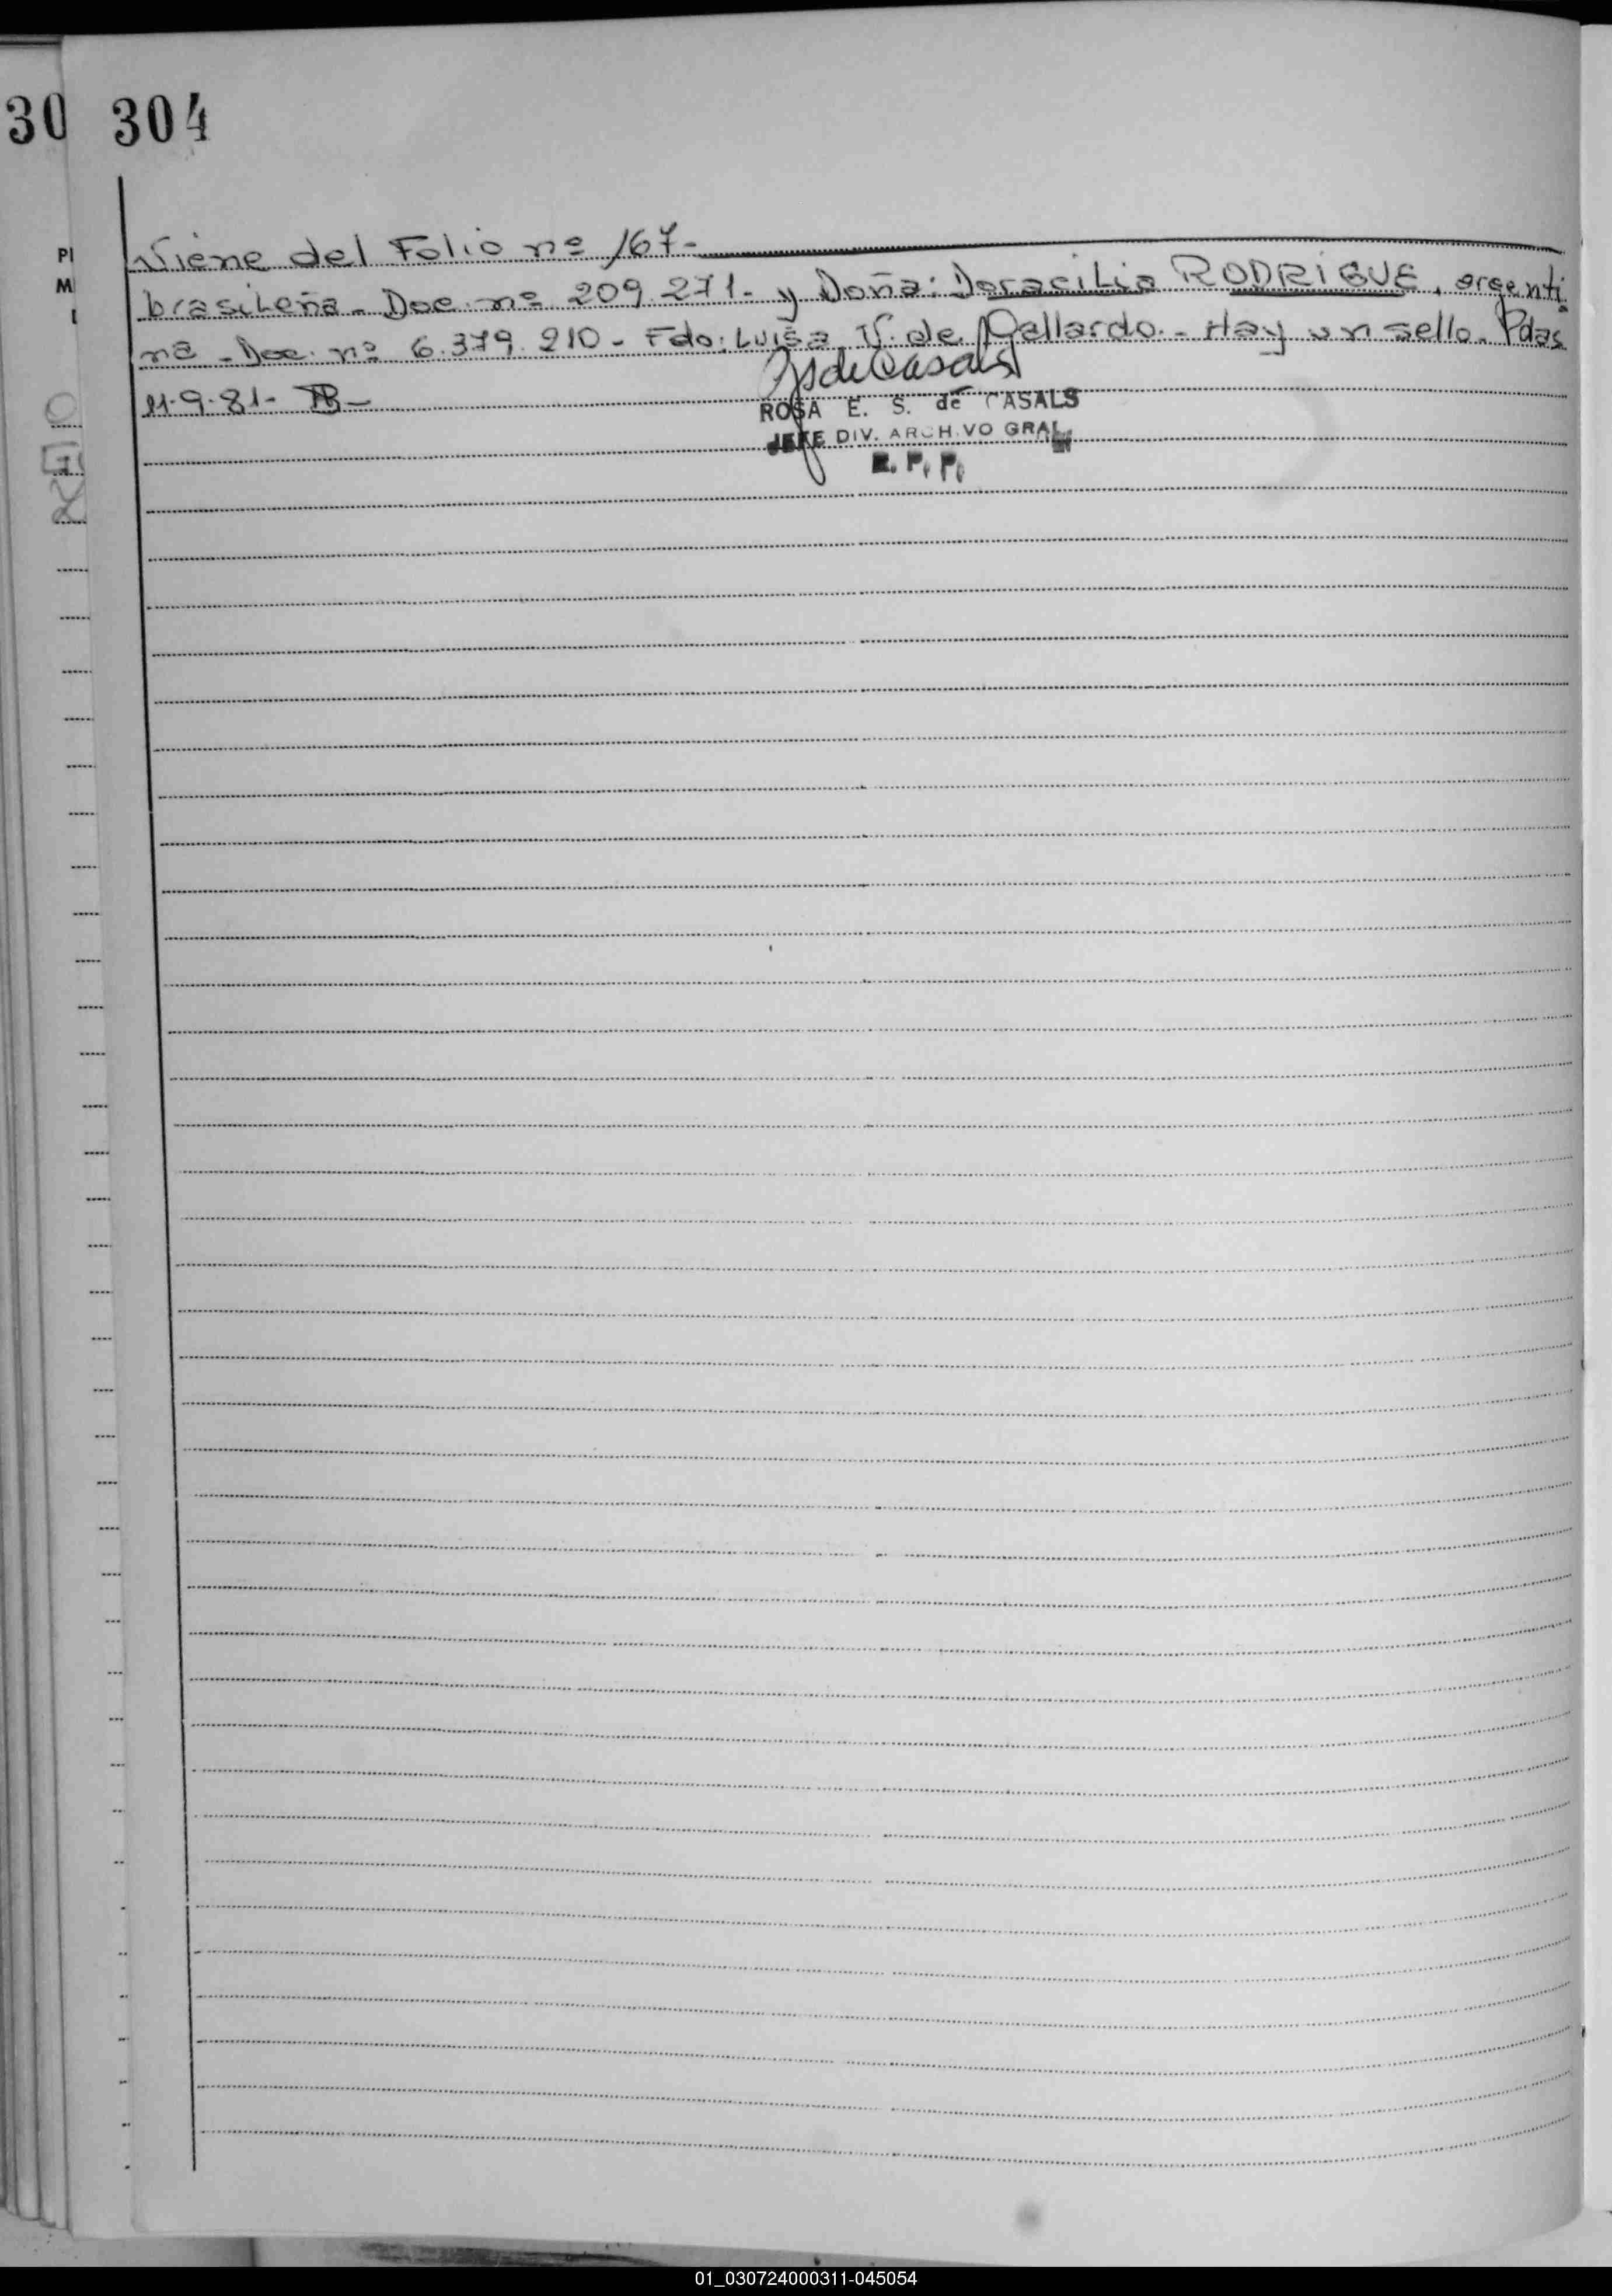 30 304
Viene del Folio nº 167-
brasileña- Doc. nº 209.271- y Doña: Doracilia RODRIGUE, argenti
na- Doc. nº 6.379.210- Fdo: Luisa V. de Gallardo.- Hay un sello. Pdas
11-9-81-
ROSA E. S. de CASALS
JEFE DIV. ARCHIVO GRAL.
R. P. P.
01_030724000311-045054